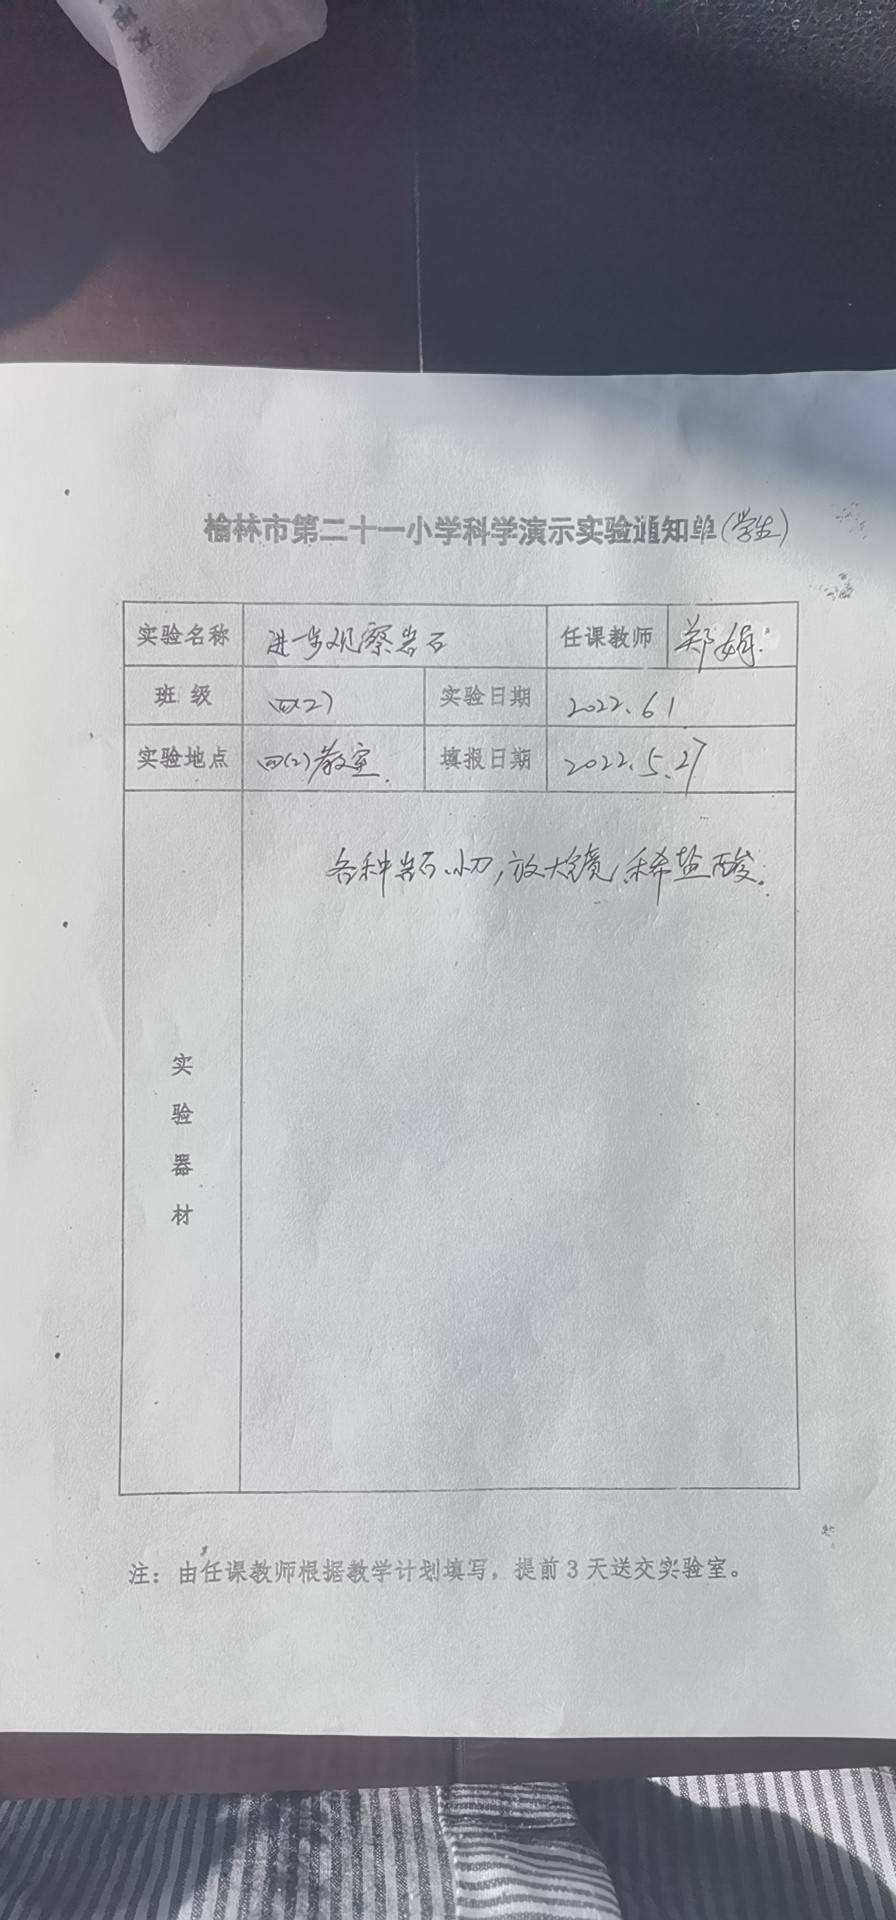 榆林市第二十一小学科学演示实验通知单(学生)
实验名称 进一步观察岩石 任课教师 郑娟
班级 四(2) 实验日期 2022.6 1
实验地点 四(2)教室. 填报日期 2022.5.27
各种岩石、小刀,放大镜,稀盐酸.
实
验
器
材
注：由任课教师根据教学计划填写，提前3天送交实验室。